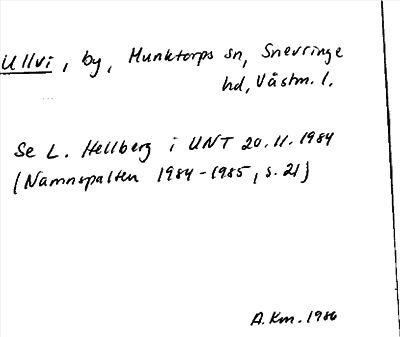 Ullvi, by, Munktorps sn, Snevringe
hd, Västm. l.
Se L. Hellberg i UNT 20.11.1984
(Namnspalten 1984-1985, s. 21)
A.Km. 1986